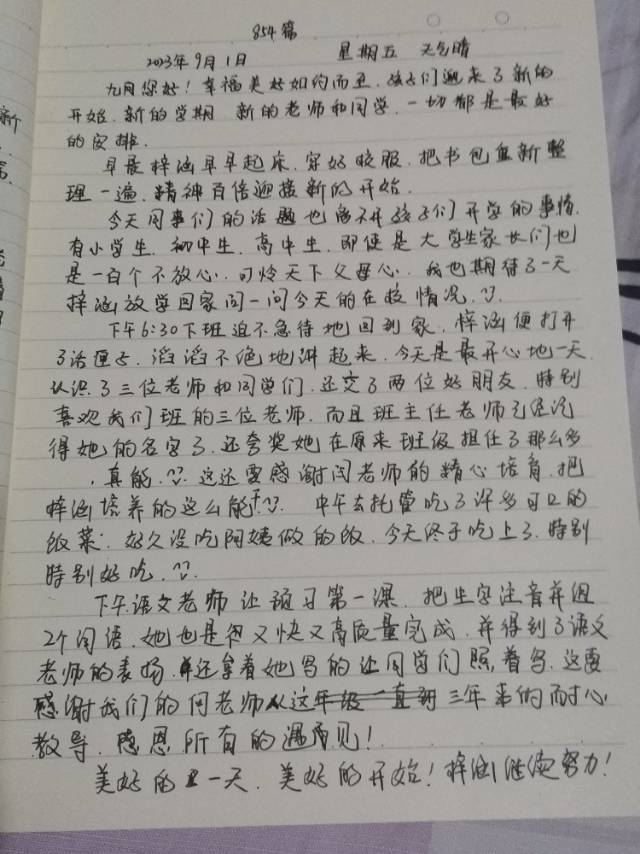 854篇
2023年9月1日 星期五 天气晴
九月您好！幸福美好如约而至，孩子们迎来了新的
开始，新的学期，新的老师和同学，一切都是最好
的安排。
早晨梓涵早早起床，穿好校服，把书包重新整
理一遍，精神百倍迎接新的开始。
今天同事们的话题也离不开孩子们开学的事情，
有小学生，初中生，高中生，即便是大学生家长们也
是一百个不放心，可怜天下父母心，我也期待了一天
梓涵放学回家问一问今天的在校情况。
下午6:30下班迫不急待地回到家，梓涵便打开
了话匣子，滔滔不绝地讲起来，今天是最开心地一天，
认识了三位老师和同学们，还交了两位好朋友，特别
喜欢我们班的三位老师，而且班主任老师已经记
得她的名字了，还夸奖她在原来班级担任了那么多
，真能，这还要感谢闫老师的精心培育，把
梓涵培养的这么能干，中午去托管吃了许多可口的
饭菜，好久没吃阿姨做的饭，今天终于吃上了，特别
特别好吃，
下午语文老师让预习第一课，把生字注音并组
2个词语，她也是很又快又高质量完成，并得到了语文
老师的表扬，并还拿着她写的让同学们照着写，这要
感谢我们的闫老师从这年级一直到三年来的耐心
教导，感恩所有的遇见！
美好的一天，美好的开始！梓涵继续努力！